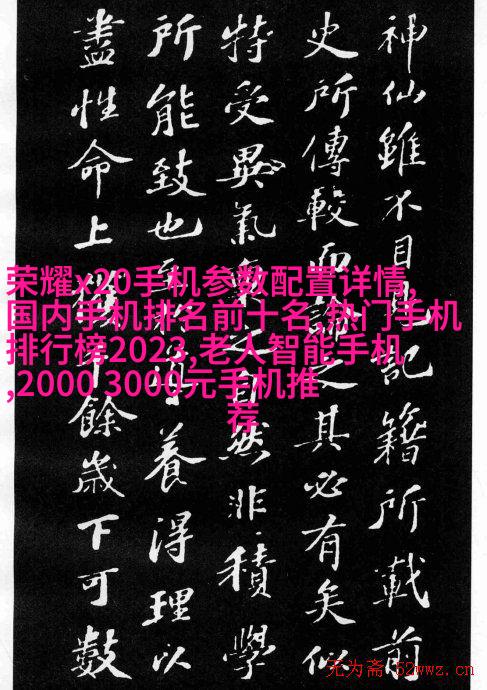 神仙雖不目見記籍所載前
史所傳較而論之其必有矣似
特受異氣稟之自然非積學
所能致也至於導養得理以
盡性命上獲千餘歲下可數
荣耀x20手机参数配置详情,
国内手机排名前十名,热门手机
排行榜2023,老人智能手机
,2000 3000元手机推
荐
无为斋 52wwz.cn